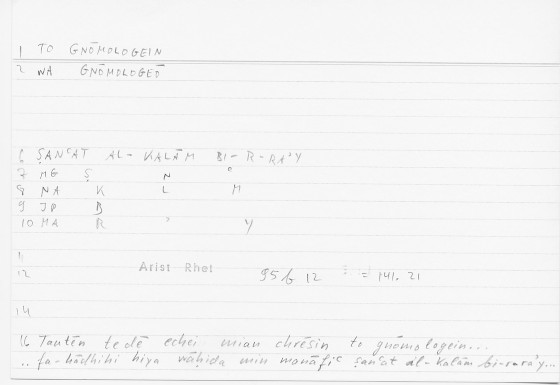 1 TO GNŌMOLOGEIN
2 WA GNŌMOLOGEŌ
6 ṢANᶜAT AL-KALĀM BI-R-RAʾY
7 MG Ṣ N ᶜ
8 NA K L M
9 JP B
10 MA R ʾ Y
11
12 Arist Rhet 95b 12 = 141. 21
14
16 Tautēn te dē echei mian chrēsin to gnōmologein...
.. fa-hādhihi hiya wāḥida min manāfiᶜ ṣanᶜat al-kalām bi-r-raʾy...